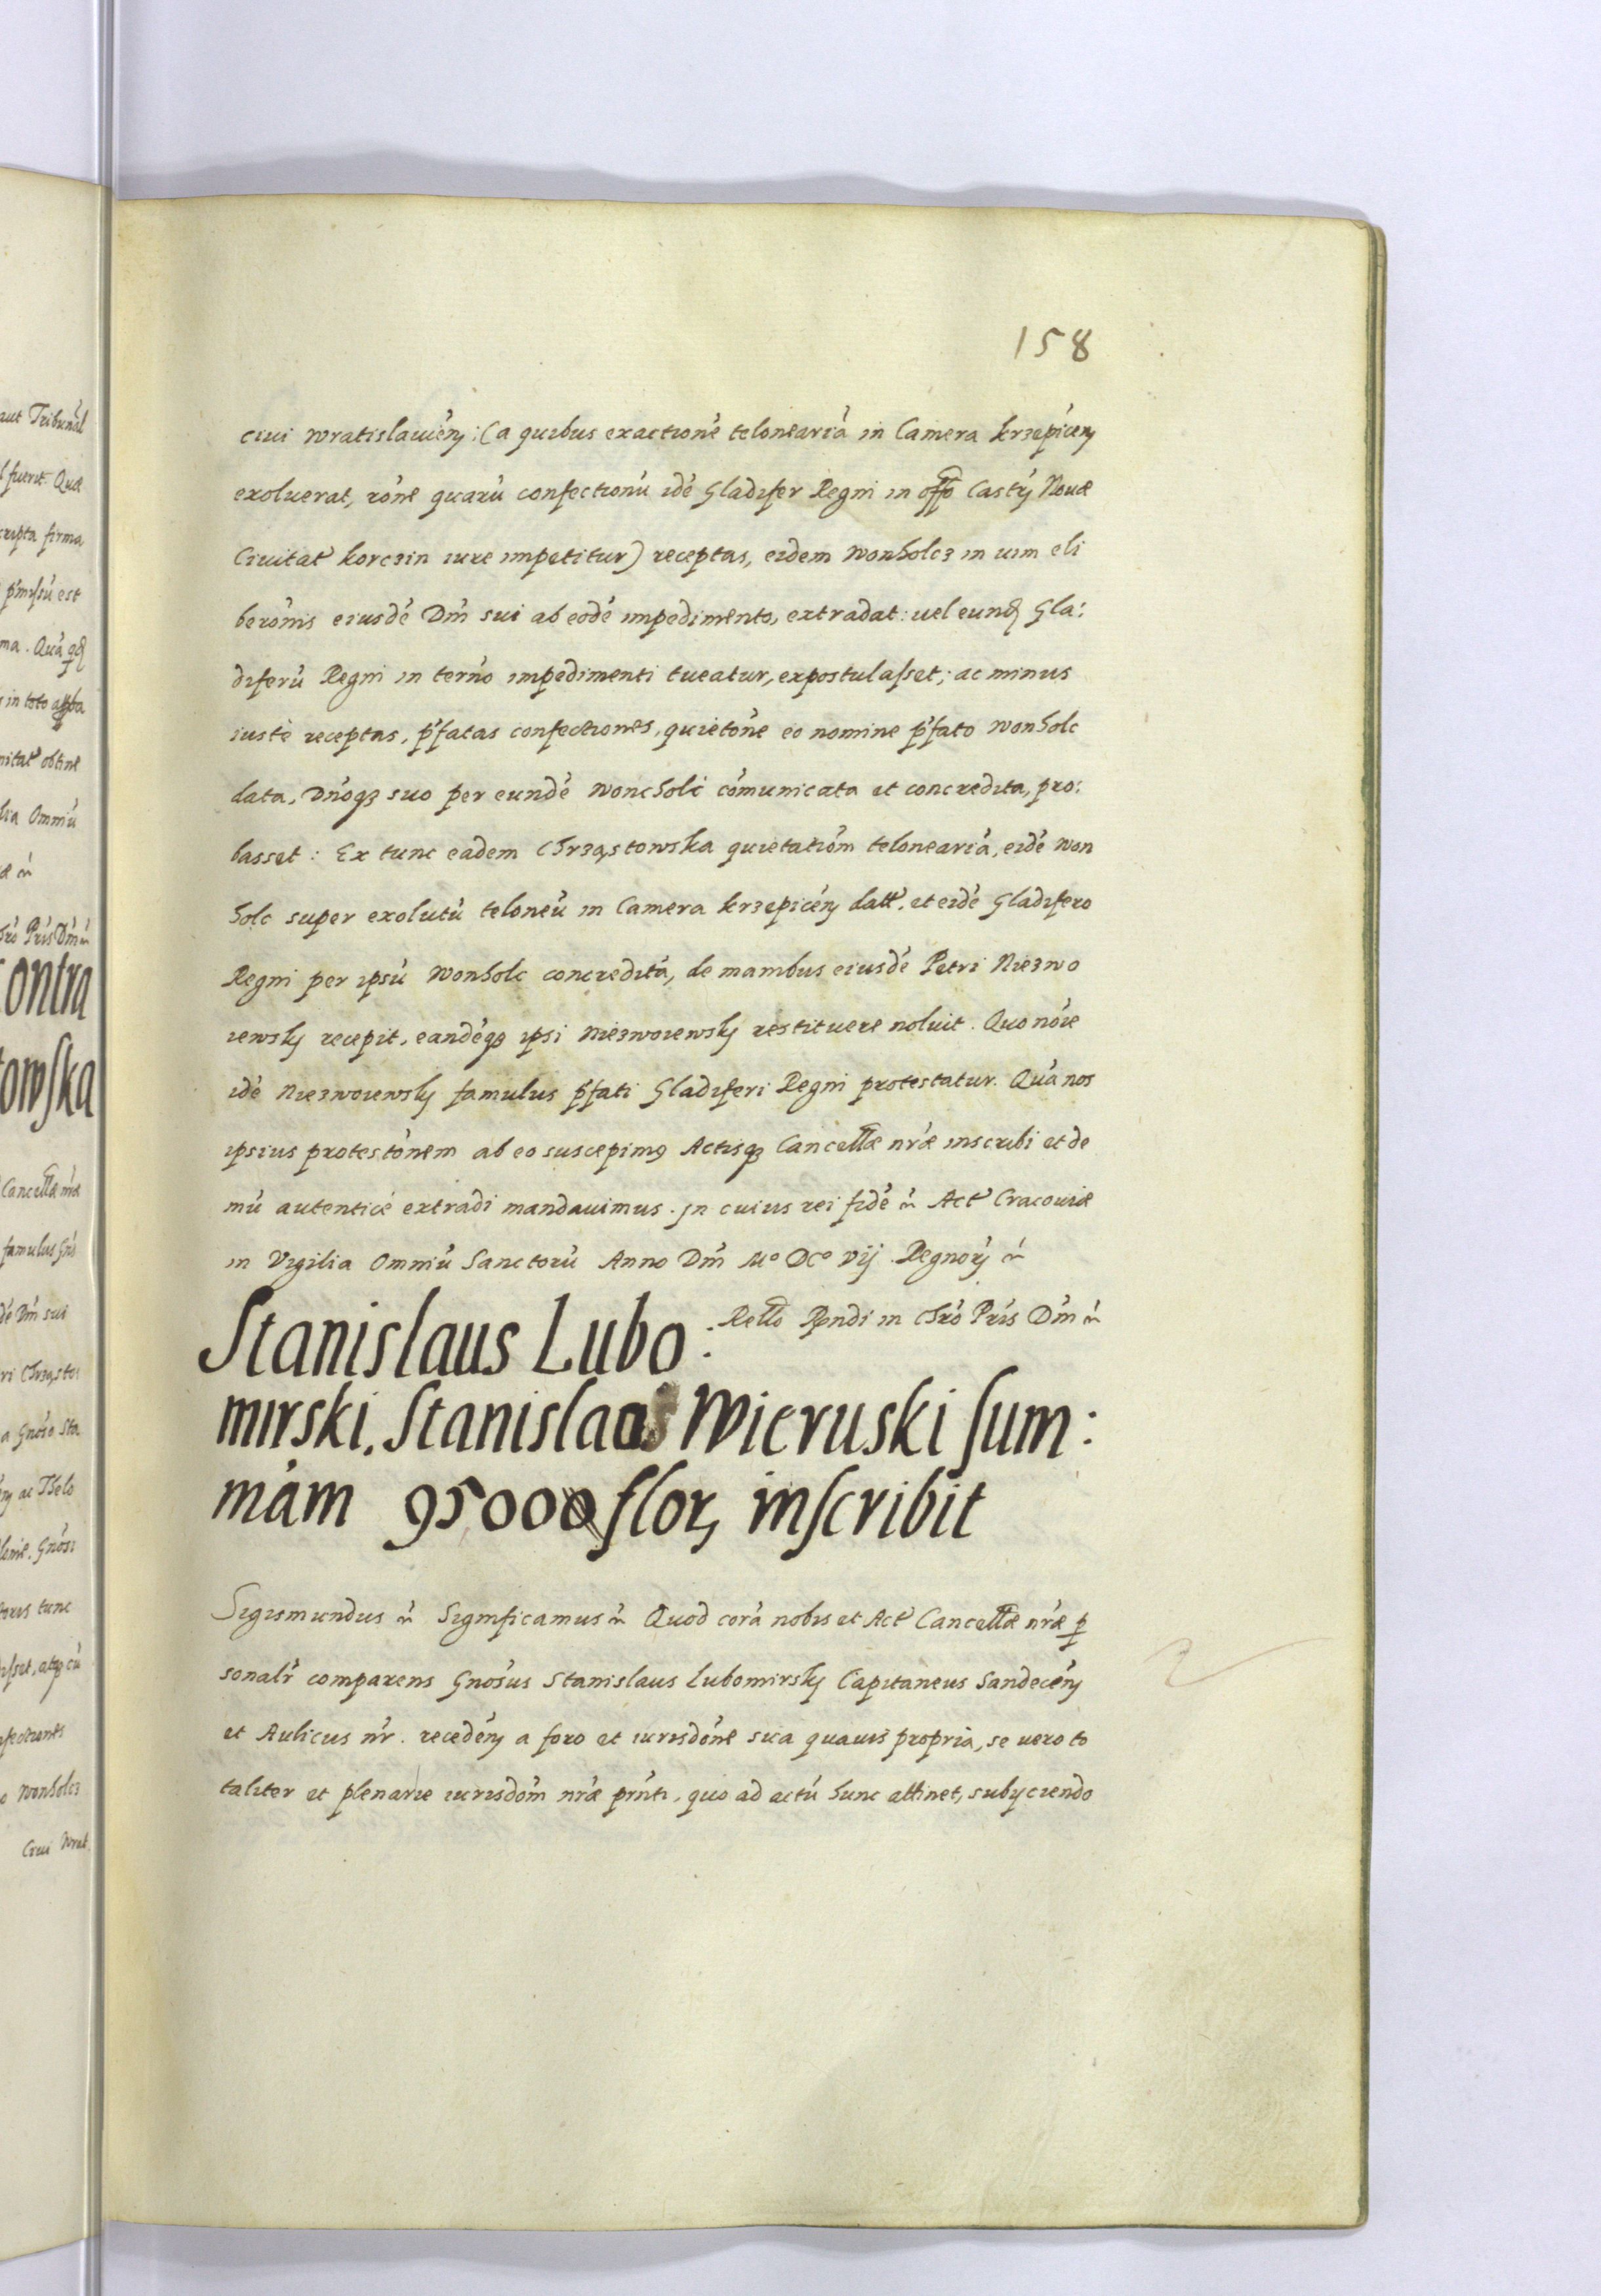 158
ciui Wratislauień: (a quibus exactionē teloneariā in Camera krzepiceń
exoluerat, rōne quarū confectionū idē Gladifer Regni in offo Castrj Nouæ
Ciuitat korczin iure impetitur) receptas, eidem Wonholcz in uim eli
berōnis eiusdē Dnī sui ab eodē impedimento, extradat: uel eund Gla:
diferū Regni in termo impedimenti tueatur, expostulasset; ac minus
iustè receptas, p̄fatas confectiones, quietōne eo nomine p̄fato Wonholc
data, Dnōq3 suo per eundē Woncholc cōmunicata et concredita, pro:
basset: Ex tunc eadem Chrząstowska quietatiōm teloneariā, eidē Won
holc super exolutū teloneū in Camera krzepiceń datt. et eidē Gladifero
Regni per ipsū Wonholc concreditā, de manibus eiusdē Petri Niezwo
iewskj recepit, eandēq3 ipsi Niezwoiewskj restituere noluit. Quo nōie
idē Niezwoiewskj famulus p̄fati Gladiferi Regni protestatur. Quā nos
ipsius protestōnem ab eo suscepimq Actisq3 Cancellæ nræ inscribi et de
mū autenticè extradi mandauimus. Jn cuius rei fidē ñ Act Cracouiæ
in Vigilia Omniū Sanctorū Anno Dnī Mº DCº Vij Regnorj ñ
Rello Rendi in Chrō Pris Dnī ñ
Stanislaus Lubo:
mirski. Stanislaus Wieruski sum:
mām 95000 flor, inscribit
Sigismundus ñ Significamus ñ Quod corā nobis et Act Cancellæ nræ p
sonalr comparens Gnōsus Stanislaus Lubomirskj Capitaneus Sandeceń
et Aulicus nr. recedeń a foro et iurisdōne sua quauis propria, se uero to
taliter et plenarie iurisdōm nræ prnti, quo ad actū hunc attinet, subijciendo